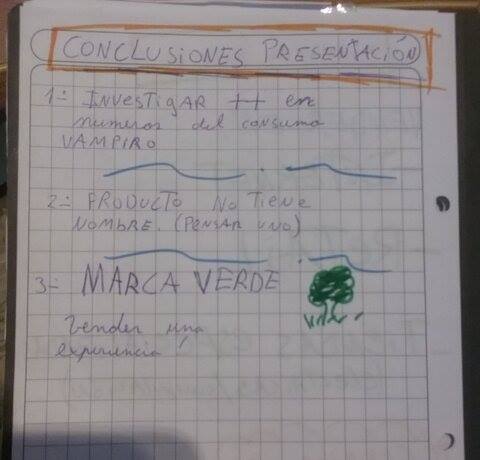 CONCLUSIONES PRESENTACIÓN
1- INVESTIGAR ++ en
numeros del consumo
VAMPIRO
2- PRODUCTO NO TIENE
NOMBRE. (PENSAR UNO)
3- MARCA VERDE
Vender una
experiencia!